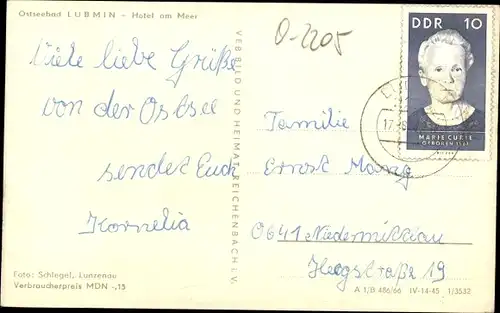 Ostseebad LUBMIN – Hotel am Meer
O-2205
Viele liebe Grüße
von der Ostsee
sendet Euch
Kornelia
Foto: Schlegel, Lunzenau
Verbraucherpreis MDN -,15
VEB BILD UND HEIMAT REICHENBACH i. V.
DDR 10
MARIE CURIE
GEBOREN 1867
Familie
Ernst Mang
0641 Niedermittlau
19
A 1/B 486/66 IV-14-45 1/3532